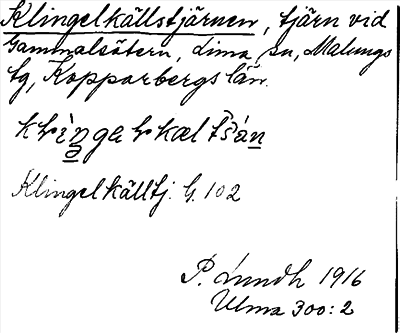 Klingelkällstjärnen, tjärn vid
Gammalsätern, Lima sn, Malungs
tg, Kopparbergs län.
Klingelkälltj. G. 102
P. Lundh 1916
Ulma 300:2